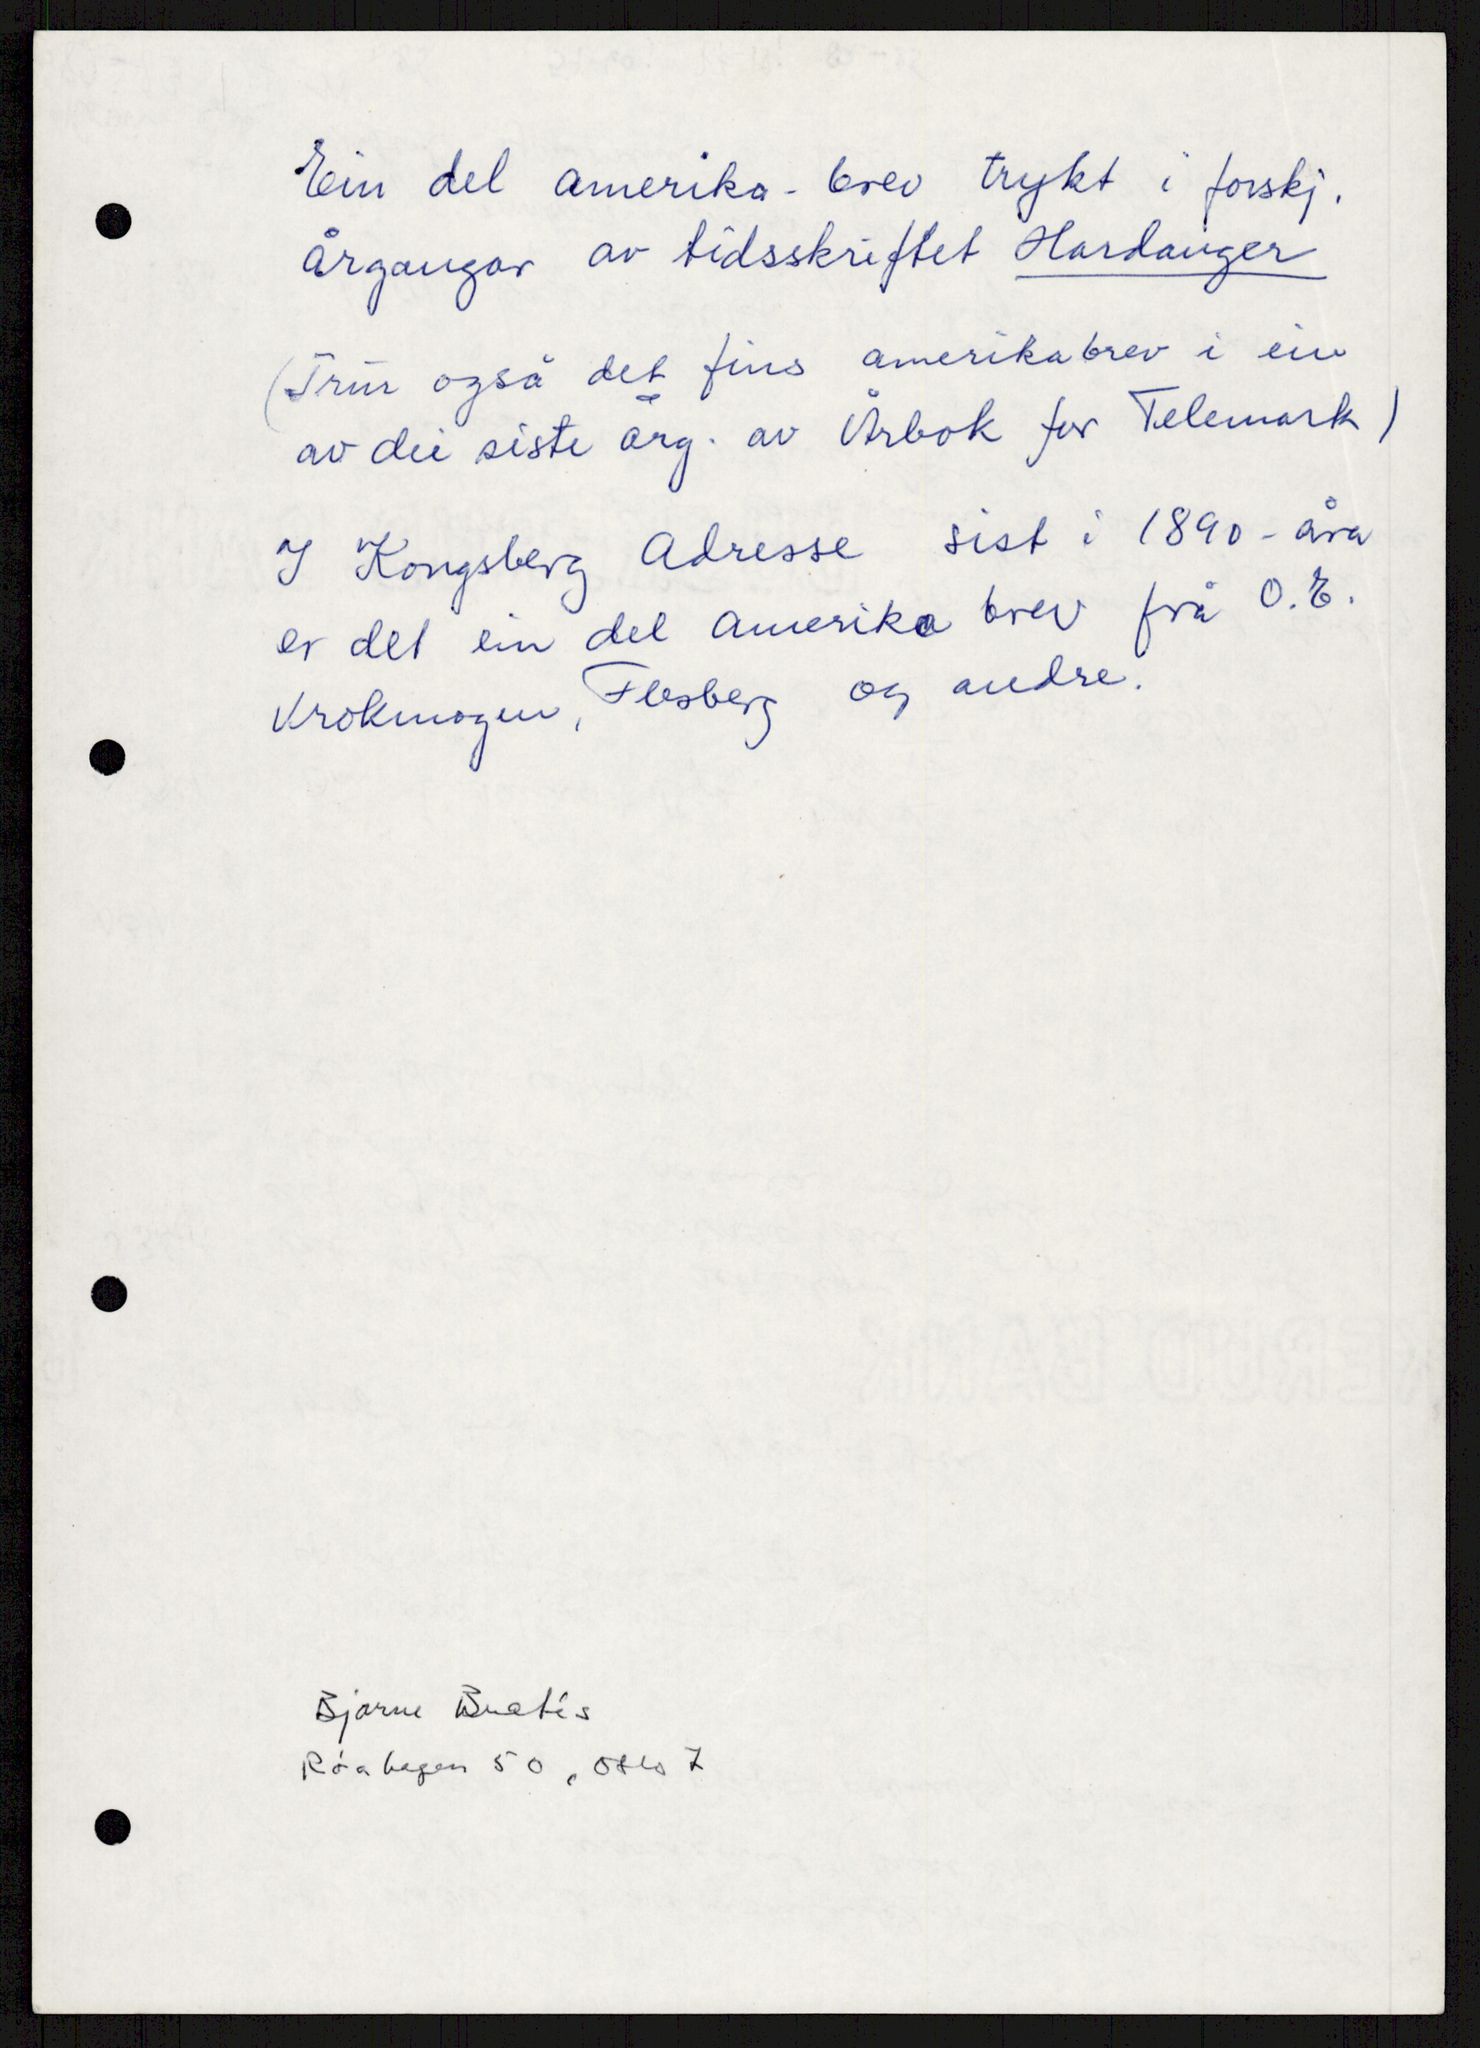 Ein del amerika-brev trykt i forskj.
årgangar av tidsskriftet Hardanger
(Trur også det fins amerikabrev i ein
av dei siste årg. av Årbok for Telemark)
I Kongsberg Adresse sist i 1890-åra
er det ein del Amerika brev frå O.E.
Krokmogen, Flesberg og andre.
Bjarne
Róahagen 50, Oslo 7